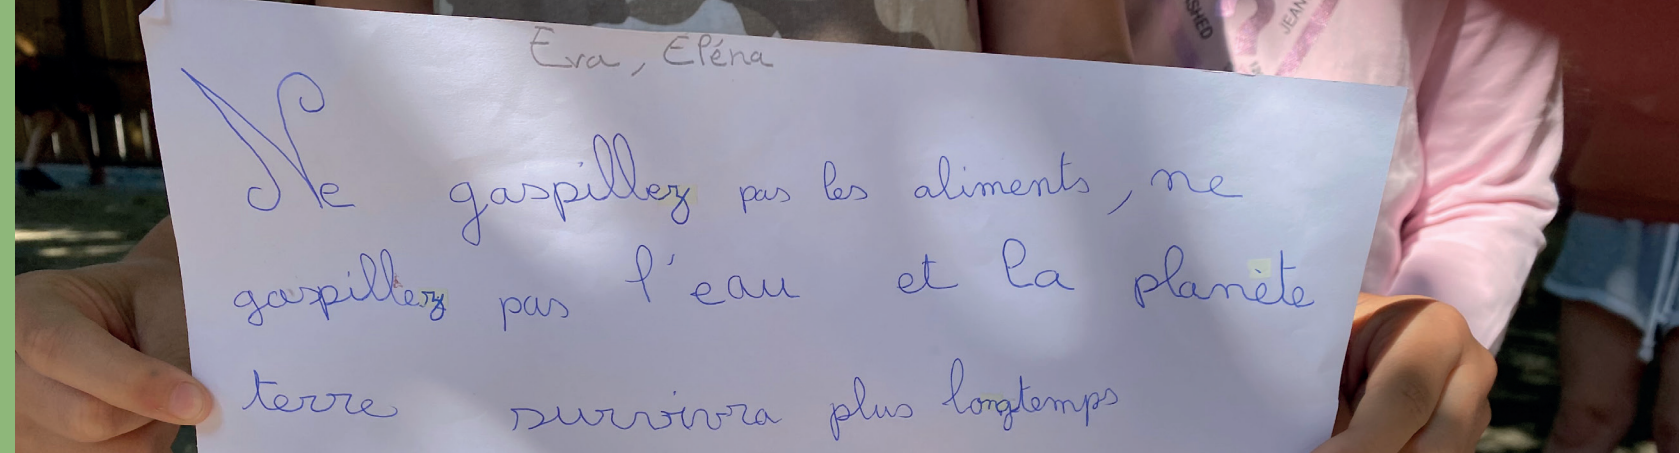 SHED
JEAN
Eva, Eléna
Ne gaspillez pas les aliments, ne
gaspillez pas l'eau et la planète
terre survivra plus longtemps